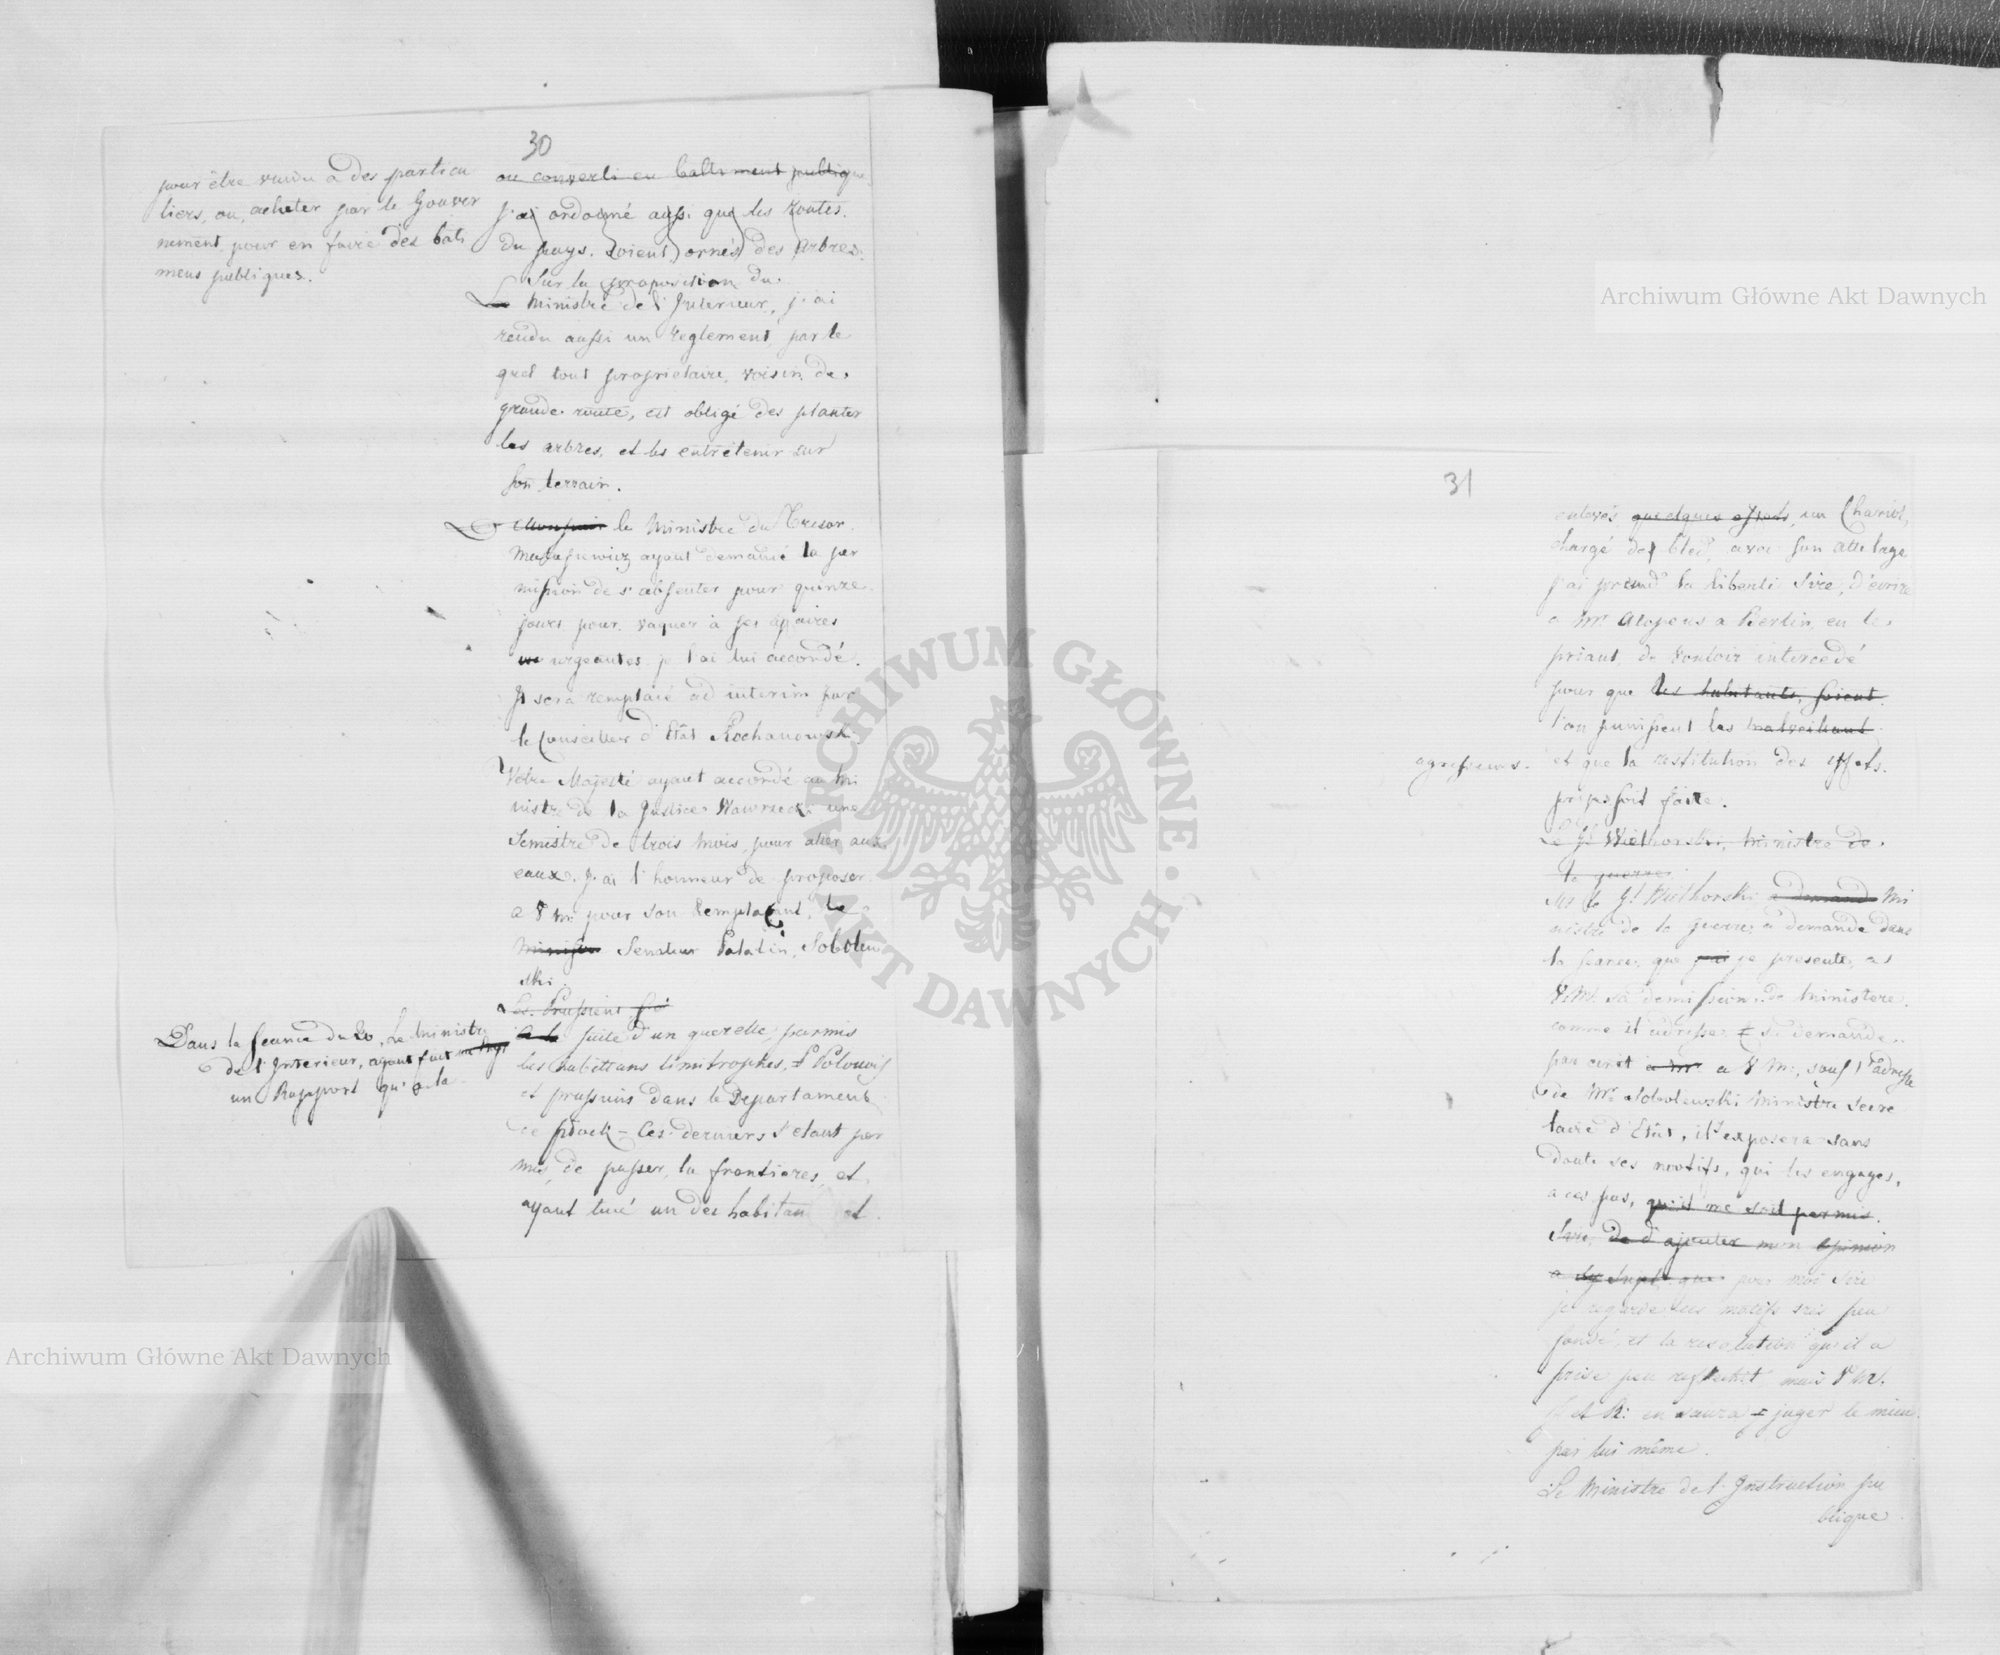 30
pour être vendu a des particu
liers, ou, acheter par le Gouver
nement, pour en faire des bati
mens publiques.
ou converti en batiment publique
j'ai ordonné aussi que les Routes.
du pays. soient ornés des arbres.
Sur la proposition du.
Le Ministre de l'Interieur, j'ai
rendu aussi un reglement, par le
quel tout proprietaire, voisin de
grande route, est obligé des planter
les arbres, et les entretenir sur
son terrain.
le Ministre du Tresor
Matusewicz ayant demandé la per
mission de s'absenter pour quinze
jours pour vaquer à ses affaires
urgeantes je l'ai lui accordé.
Il sera remplacé ad interim par
le Conseiller d'Etat Kochanowski.
Votre Majesté ayant accordé au Mi
nistre de la Justice Wawrzecki une
Semistre de trois mois, pour aller aux
eaux. J'ai l'honneur de proposer
a V M: pour son Remplaçant, le
Ministre Senateur Palatin, Sobolew
ski.
Les Prussiens
Dans la seance du 20, Le Ministre
de l'Interieur, ayant fait
un Rapport qu'a la
A la suite d'un querelle, parmis
les habittans limitrophes, Polonois
et prussiens dans le Departament
de Plock - Ces derniers s'etant per
mis, de passer, la frontieres, et
ayant tué un des habitan et
31
enlevés quelques effets, un Chariot,
chargé de bled, avec son attelage
j'ai prend la liberté Sire, d'ecrire
a Mr Alopeus a Berlin, en le
priant, de vouloir intercedé
pour que les habitants, soient
l'on punissent les malveillant
agresseurs.
et que la restitution des effets.
pris soit faite.
Le Gl Wielhorski, Ministre de
la guerre
Le Gl Wielhorski a demandé Mi
nistre de la guerre, a demandé dans
la seance, que j'ai je presente, a
V. M. sa demission, de Ministere.
comme il adresse sa demande
par ecrit a Mr a V M:, sous l'adresse
de Mr Sobolewski Ministre Secre
taire d'Etat, il exposera sans
doute ses motifs, qui les engages,
a ces pas, qu'il me soit permis
Sire, de d'ajouter mon opinion
a ce sujet que pour moi Sire
je regarde ces motifs tres peu
fondé, et la resolution qu'il a
prise peu reflechit mais V M.
I. et R: en saura juger le mieux
par lui même.
Le Ministre de l'Instruction pu
blique
Archiwum Główne Akt Dawnych
Archiwum Główne Akt Dawnych
ARCHIWUM GŁÓWNE AKT DAWNYCH